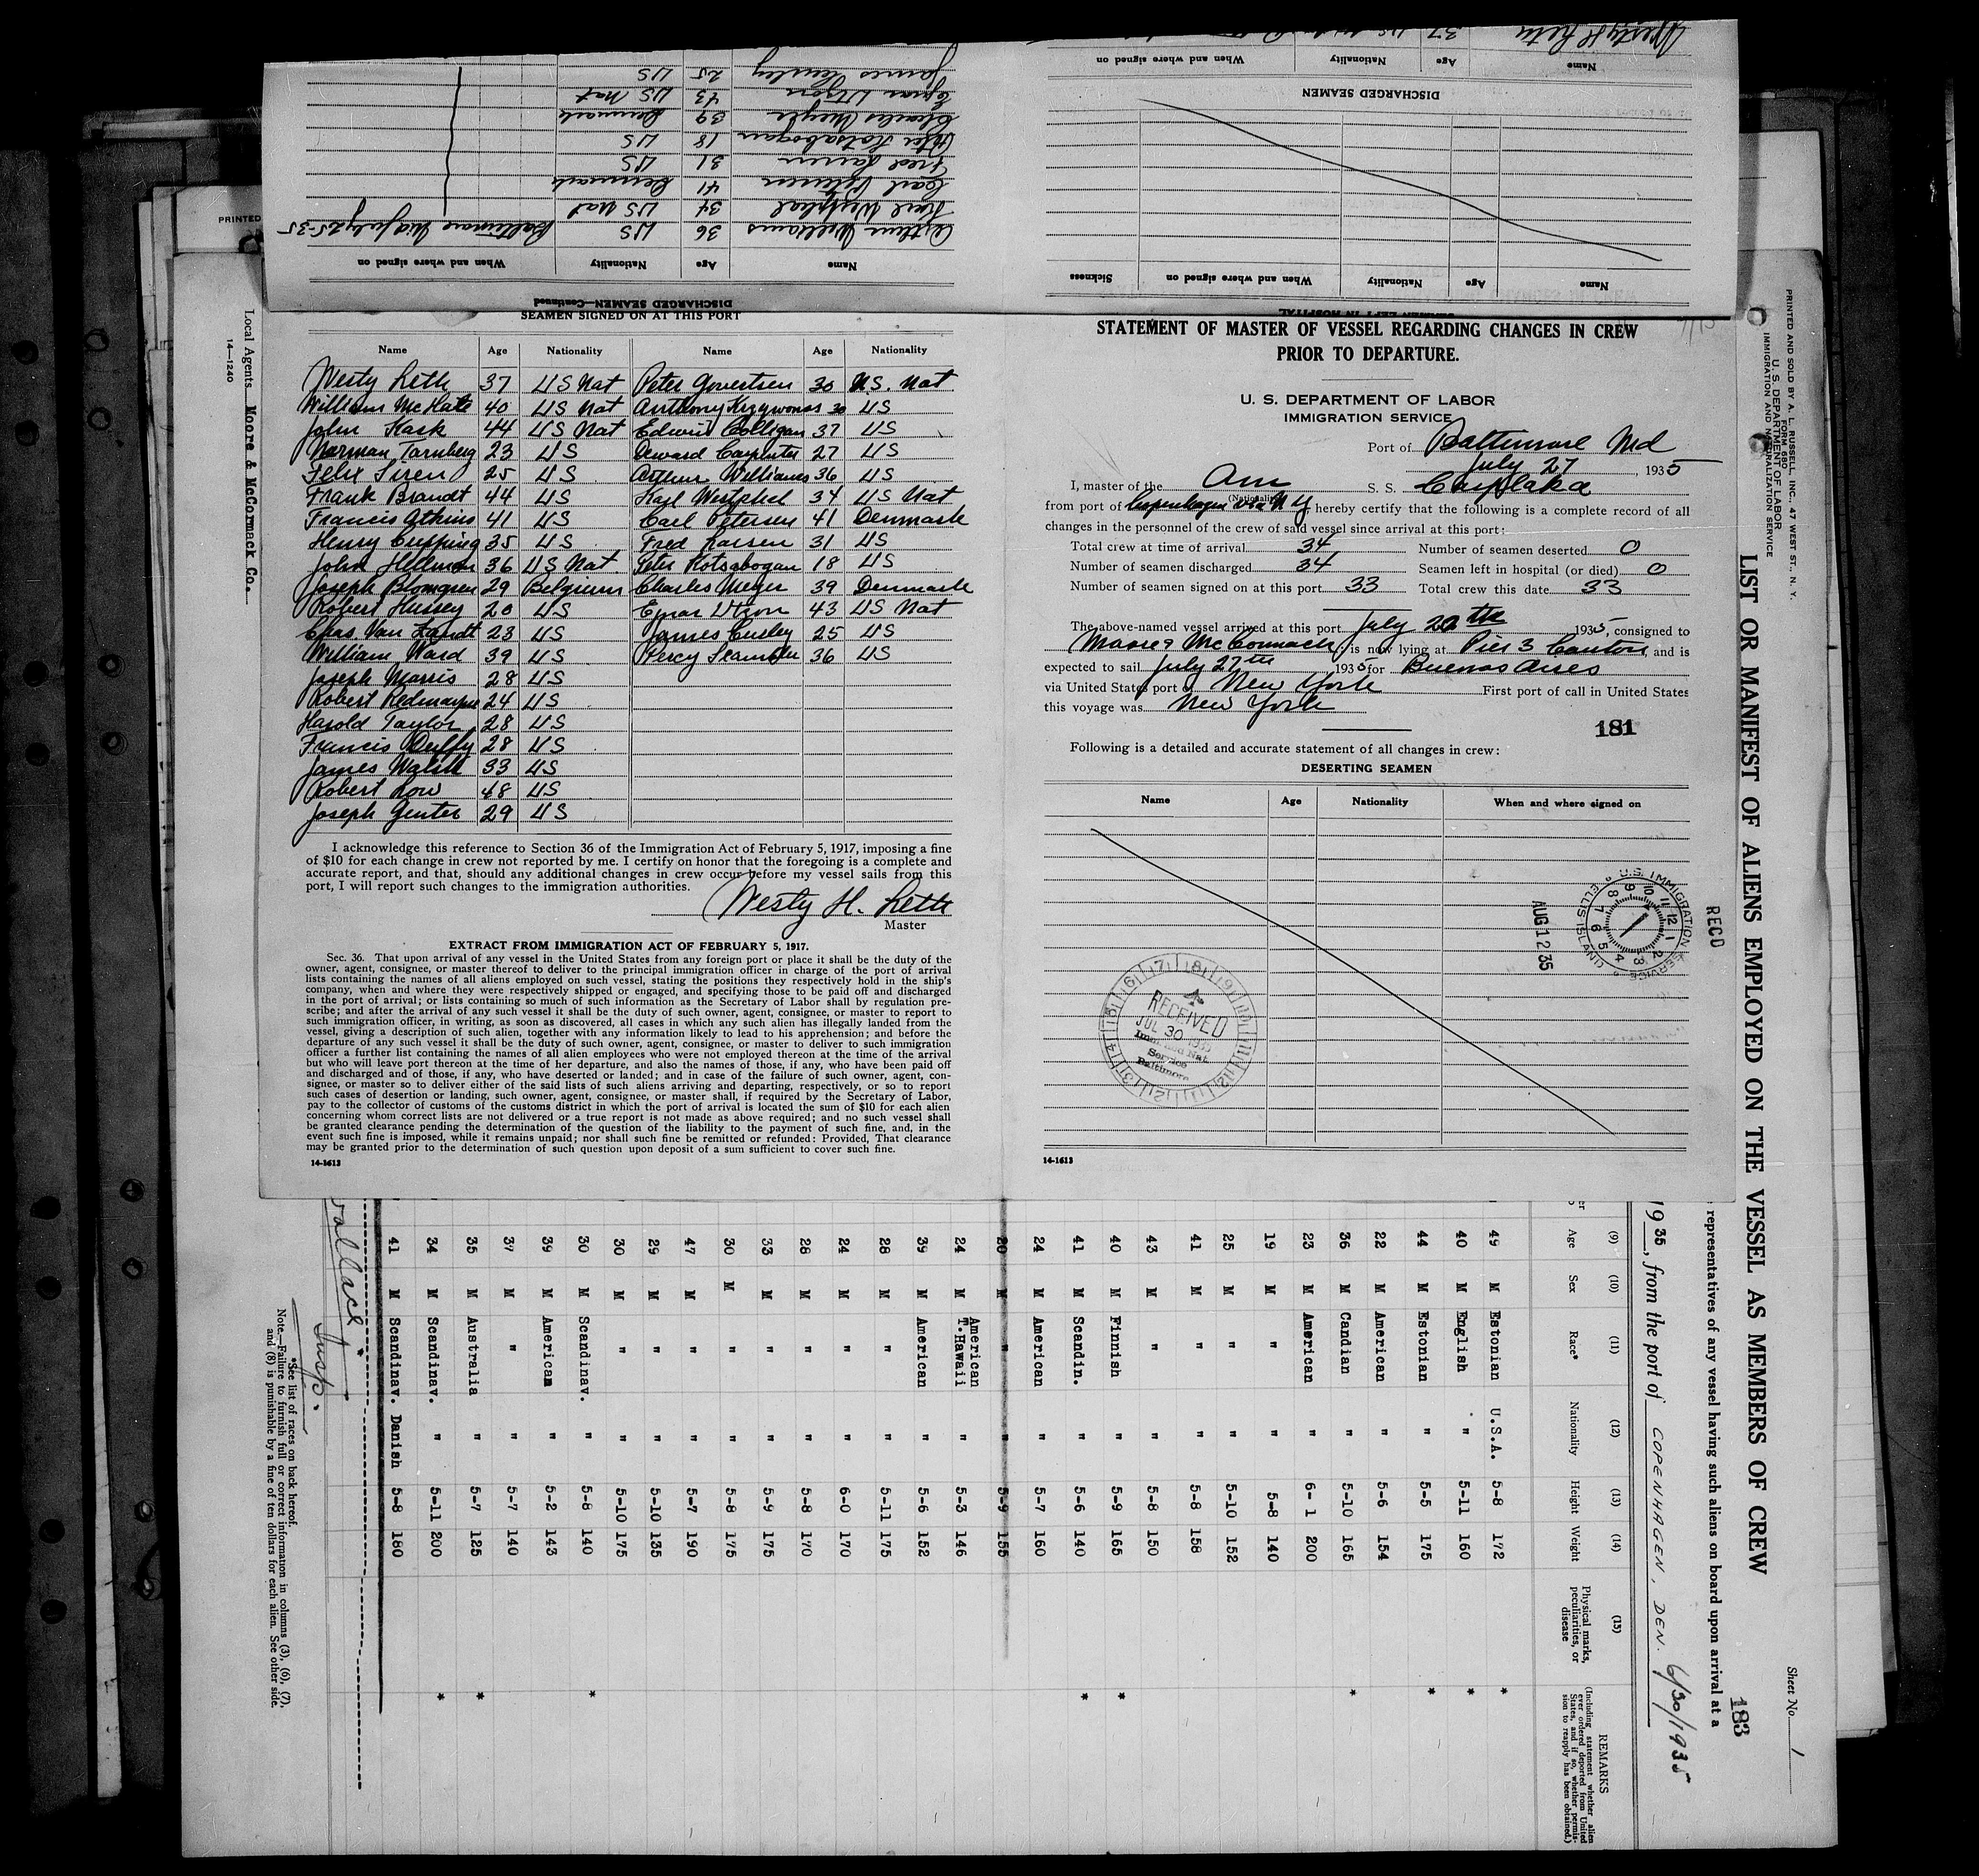 Name Age Nationality When and where signed on
DISCHARGED SEAMEN
Name Age Nationality When and where signed on Sickness
DISCHARGED SEAMEN—Continued
Name Age Nationality When and where signed on
Arthur Williams 36 US Baltimore Md July 25-35
Karl Westphal 34 US Nat
Carl Petersen 41 Denmark
Fred Larsen 31 US
Peter Kotsabogan 18 US
Charles Meyer 39 Denmark
Ejnar Utzon 43 US Nat
James 25 US
SEAMEN SIGNED ON AT THIS PORT
Name Age Nationality Name Age Nationality
Westy Leth 37 US Nat Peter Govertsen 30 U.S. Nat
William McHale 40 US Nat Anthony 30 US
John Kask 44 US Nat Edwin Colligan 37 US
Norman Tarnberg 23 US Deward Carpenter 27 US
Felix Siren 25 US Arthur Williams 36 US
Frank Brandt 44 US Karl Westphal 34 US Nat
Francis Atkins 41 US Carl Petersen 41 Denmark
Henry 35 US Fred Larsen 31 US
John Hellman 36 US Nat Peter Kotsabogan 18 US
Joseph Blomgren 29 Belgium Charles Meyer 39 Denmark
Robert Hussey 20 US Ejnar Utzon 43 US Nat
Chas. Van Zandt 23 US James 25 US
William Ward 39 US Percy 36 US
Joseph Morris 28 US
Robert Redmayne 24 US
Harold Taylor 28 US
Francis Duffy 28 US
James Walsh 33 US
Robert Low 48 US
Joseph Genter 29 US
I acknowledge this reference to Section 36 of the Immigration Act of February 5, 1917, imposing a fine
of $10 for each change in crew not reported by me. I certify on honor that the foregoing is a complete and
accurate report, and that, should any additional changes in crew occur before my vessel sails from this
port, I will report such changes to the immigration authorities.
Westy H. Leth
Master
EXTRACT FROM IMMIGRATION ACT OF FEBRUARY 5, 1917.
Sec. 36. That upon arrival of any vessel in the United States from any foreign port or place it shall be the duty of the
owner, agent, consignee, or master thereof to deliver to the principal immigration officer in charge of the port of arrival
lists containing the names of all aliens employed on such vessel, stating the positions they respectively hold in the ship's
company, when and where they were respectively shipped or engaged, and specifying those to be paid off and discharged
in the port of arrival; or lists containing so much of such information as the Secretary of Labor shall by regulation pre-
scribe; and after the arrival of any such vessel it shall be the duty of such owner, agent, consignee, or master to report to
such immigration officer, in writing, as soon as discovered, all cases in which any such alien has illegally landed from the
vessel, giving a description of such alien, together with any information likely to lead to his apprehension; and before the
departure of any such vessel it shall be the duty of such owner, agent, consignee, or master to deliver to such immigration
officer a further list containing the names of all alien employees who were not employed thereon at the time of the arrival
but who will leave port thereon at the time of her departure, and also the names of those, if any, who have been paid off
and discharged and of those, if any, who have deserted or landed; and in case of the failure of such owner, agent, con-
signee, or master so to deliver either of the said lists of such aliens arriving and departing, respectively, or so to report
such cases of desertion or landing, such owner, agent, consignee, or master shall, if required by the Secretary of Labor,
pay to the collector of customs of the customs district in which the port of arrival is located the sum of $10 for each alien
concerning whom correct lists are not delivered or a true report is not made as above required; and no such vessel shall
be granted clearance pending the determination of the question of the liability to the payment of such fine, and, in the
event such fine is imposed, while it remains unpaid; nor shall such fine be remitted or refunded: Provided, That clearance
may be granted prior to the determination of such question upon deposit of a sum sufficient to cover such fine.
14-1613
STATEMENT OF MASTER OF VESSEL REGARDING CHANGES IN CREW
PRIOR TO DEPARTURE.
U. S. DEPARTMENT OF LABOR
IMMIGRATION SERVICE
Port of Baltimore Md
July 27, 1935
I, master of the Am S. S. Capulaka
(Nationality)
from port of Copenhagen via N Y hereby certify that the following is a complete record of all
changes in the personnel of the crew of said vessel since arrival at this port:
Total crew at time of arrival 34 Number of seamen deserted 0
Number of seamen discharged 34 Seamen left in hospital (or died) 0
Number of seamen signed on at this port 33 Total crew this date 33
The above-named vessel arrived at this port July 20th 1935, consigned to
Moore & McCormack; is now lying at Pier 3 Canton, and is
expected to sail July 27th 1935 for Buenos Aires
via United States port of New York First port of call in United States
this voyage was New York
181
Following is a detailed and accurate statement of all changes in crew:
DESERTING SEAMEN
Name Age Nationality When and where signed on
RECEIVED
JUL 30 1935
Service
Baltimore
RECD
U.S. IMMIGRATION SERVICE ELLIS ISLAND
AUG 12 35
14-1613
PRINTED
Local Agents Moore & McCormack Co.
14—1240
PRINTED AND SOLD BY A. I. RUSSELL, INC., 47 WEST ST., N. Y.
FORM 680
U. S. DEPARTMENT OF LABOR
IMMIGRATION AND NATURALIZATION SERVICE
Sheet No. 1
LIST OR MANIFEST OF ALIENS EMPLOYED ON THE VESSEL AS MEMBERS OF CREW
183
representatives of any vessel having such aliens on board upon arrival at a
1935, from the port of COPENHAGEN, DEN. 6/30/1935
(9) (10) (11) (12) (13) (14) (15)
Age Sex Race* Nationality Height Weight Physical marks, peculiarities, or disease
REMARKS
(Including statement whether alien ever ordered deported from United States, and if so, whether permission to reapply has been obtained.)
49 M Estonian U.S.A. 5-8 172 *
40 M English " 5-11 160 *
44 M Estonian " 5-5 175 *
22 M American " 5-6 154
36 M Candian " 5-10 165 *
23 M American " 6-1 200
19 M " " 5-8 140
25 M " " 5-10 152
41 M " " 5-8 158
43 M " " 5-8 150
40 M Finnish " 5-9 165 *
41 M Scandin. " 5-6 140 *
24 M American " 5-7 160
20 M " 5-9 155
24 M American T.Hawaii " 5-3 146
39 M American " 5-6 152
28 M " " 5-11 175
24 M " " 6-0 170
28 M " " 5-8 170
33 M " " 5-9 175
30 M " " 5-8 175
47 M " " 5-7 190
29 M " " 5-10 135
30 M " " 5-10 175
30 M Scandinav. " 5-8 140 *
39 M American " 5-2 143
37 M " " 5-7 140
35 M Australia " 5-7 125 *
34 M Scandinav. " 5-11 200 *
41 M Scandinav. Danish 5-8 180
Wallace
Insp.
*See list of races on back hereof.
Note.—Failure to furnish full or correct information in columns (3), (6), (7),
and (8) is punishable by a fine of ten dollars for each alien. See other side.